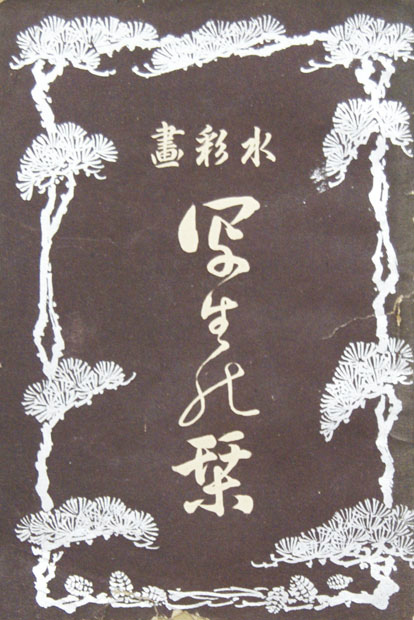 水彩畫
写生の栞